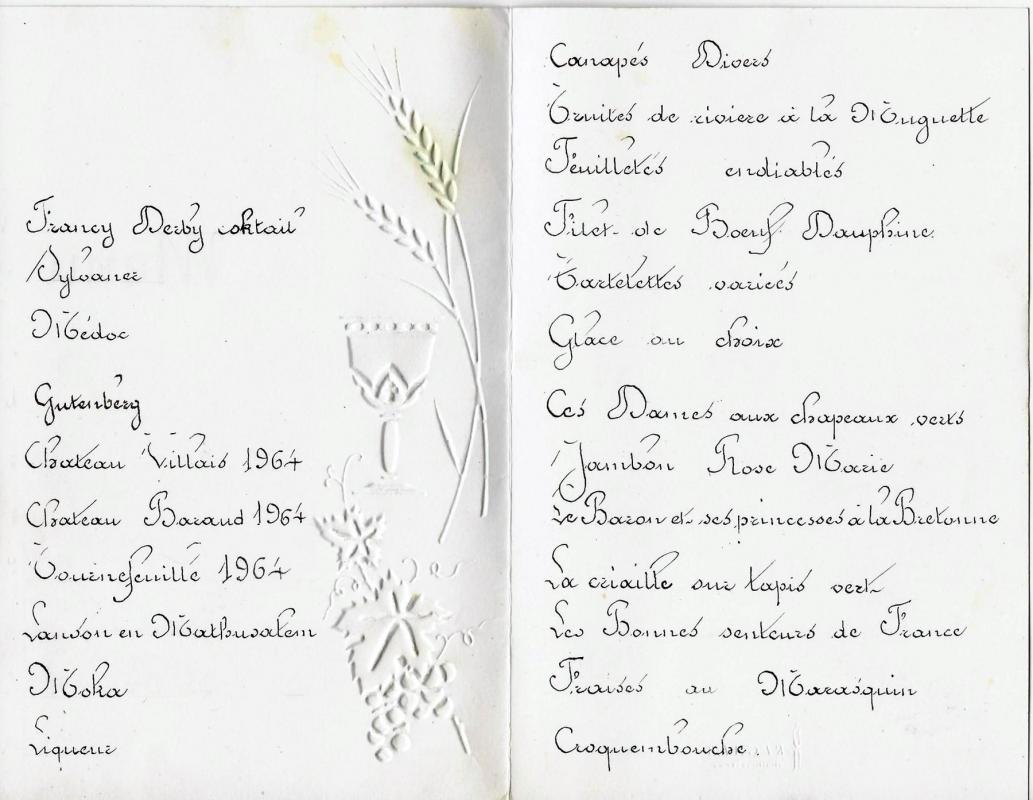 Francy Derby coktail
Sylvaner
Médoc
Gutenberg
Chateau Villais 1964
Chateau Baraud 1964
Tournefeuille 1964
Lanson en Mathusalem
Moka
Liqueur
Canapés Divers
Truites de riviere à la Muguette
Feuilletés endiablés
Filet de Boeuf Dauphine
Tartelettes variées
Glace au choix
Ces Dames aux chapeaux verts
Jambon Rose Marie
Le Baron et ses princesses à la Bretonne
La criaille sur tapis vert
Les Bonnes senteurs de France
Fraises au Marasquin
Croquembouche.